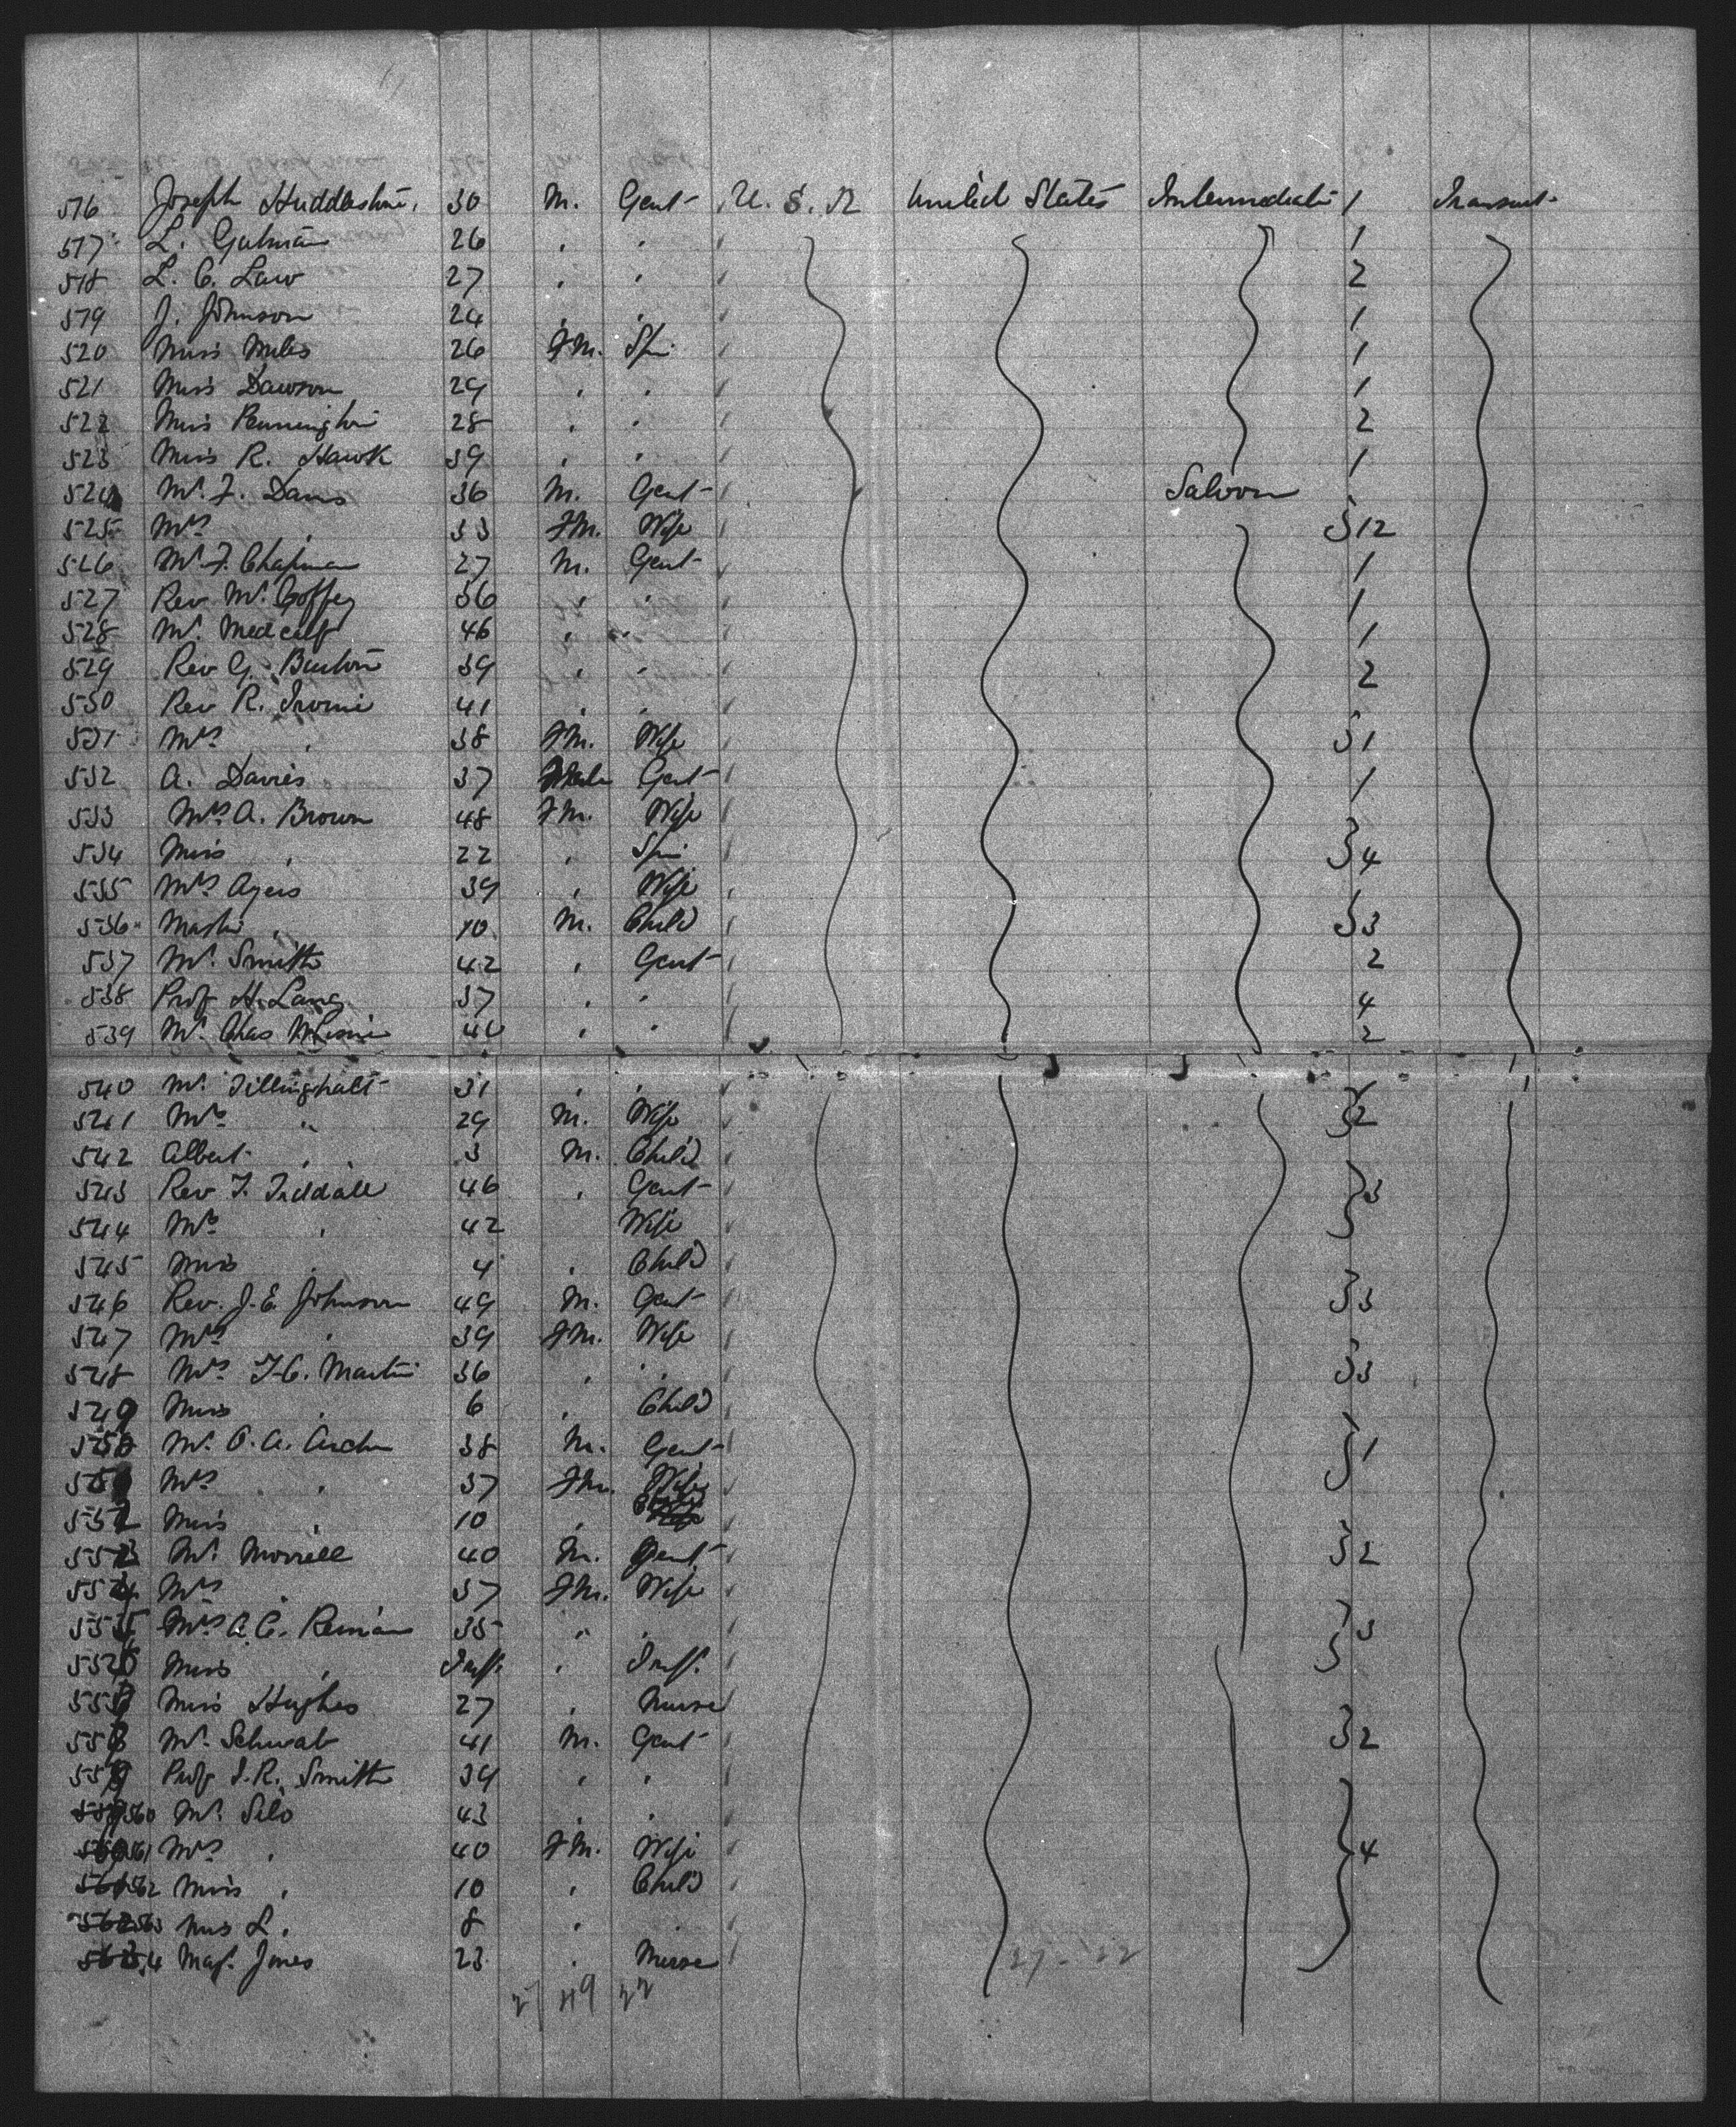 516 Joseph Huddlestone. 30 M. Gent U. S. A United States Intermediate 1 Transient
517 L. Gutman 26 " " 1
518 L. C. Law 27 " " 2
519 J. Johnson 24 " " 1
520 Miss Miles 26 Fm. Spin 1
521 Miss Dawson 29 " " 1
522 Miss Pennington 28 " " 2
523 Miss R. Hawk 39 " " 1
524 Mr. F. Davis 36 M. Gent Saloon
525 Mrs " 33 Fm. Wife } 12
526 Mr. F. Chapman 27 M. Gent 1
527 Rev Mr. Coffey 56 " " 1
528 Mr. Medcalf 46 " " 1
529 Rev G. Burton 39 " " 2
530 Rev R. Irvine 41 " "
531 Mrs " 38 Fm. Wife } 1
532 A. Davies 37 Gent 1
533 Mrs A. Brown 48 Fm. Wife
534 Miss " 22 " Spin } 4
535 Mrs Ayers 39 " Wife
536 Master " 10 M. Child } 3
537 Mr. Smith 42 " Gent 2
538 Prof H. Lang 37 " " 4
539 Mr. Chas 40 " " 2
540 Mr. Tillinghast 31 " "
541 Mrs " 29 M. Wife } 2
542 Albert " 3 M. Child
543 Rev F. Tiddall 46 " Gent } 3
544 Mrs " 42 Wife
545 Miss " 4 " Child
546 Rev. J. E. Johnson 49 M. Gent } 3
547 Mrs " 39 Fm. Wife
548 Mrs F. C. Martin 36 " " } 3
549 Miss " 6 " Child
550 Mr. O. A. Archer 38 M. Gent } 1
551 Mrs " 37 Fm. Wife
552 Miss " 10 " Child
553 Mr. Morrell 40 M. Gent } 2
554 Mrs " 37 Fm. Wife
555 Mrs A. C. 35 " " } 3
556 Miss " Inft. " Inft.
557 Miss Hughes 27 " Nurse
558 Mr. Schwab 41 M. Gent } 2
559 Prof J. R. Smith 39 " "
560 Mr. Silo 43 " "
561 Mrs " 40 Fm. Wife } 4
562 Miss " 10 " Child
563 Miss L. 8 " "
564 Mag. Jones 23 " Nurse
27 49 22 27 - 22